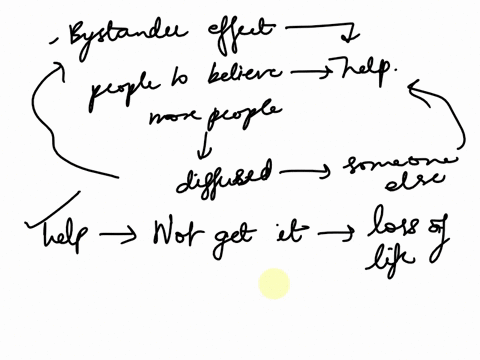 Bystander effect →
people to believe → help.
more people
↓
diffused → someone else
help → Not get it → loss of life